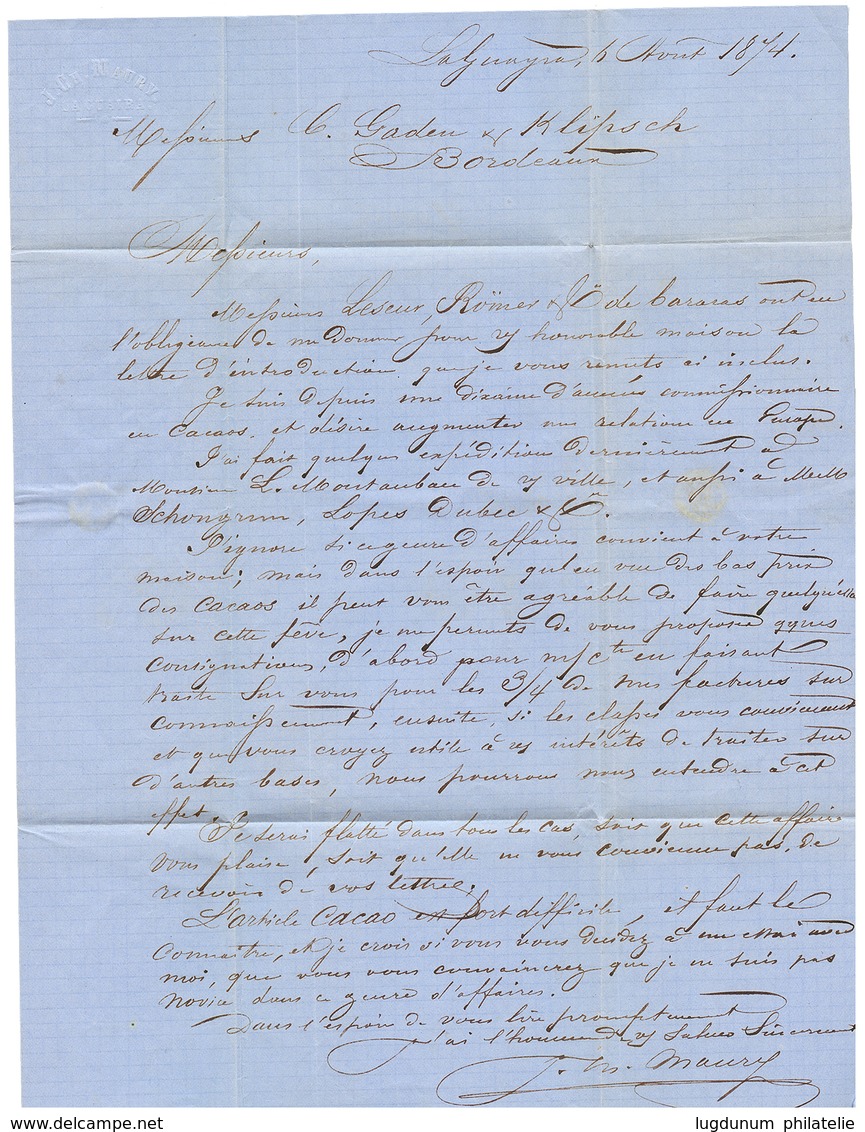 J. Ch. MAURY
LA GUAIRA
LaGuayra, 6 Août 1874.
Messieurs C. Gaden & Klipsch
Bordeaux
Messieurs,
Messieurs Leseur, Römer & Cie de Caracas ont eu
l'obligeance de me donner pour vy honorable maison la
lettre d'introduction que je vous remets ci inclus.
Je suis depuis une dixaine d'années commissionnaire
en cacaos, et désire augmenter mes relations en Europe.
J'ai fait quelques expéditions dernièrement à
Monsieur L. Montauban de vy ville, et aussi à MM
Schongrun, Lopes Dubec & Cie.
J'ignore si ce genre d'affaires convient à votre
maison; mais dans l'espoir qu'en vue des bas prix
des cacaos il peut vous être agréable de faire quelqu'essai
sur cette fève, je me permets de vous proposer qques
consignations, d'abord pour m/cte en faisant
traite sur vous pour les 3/4 de mes factures sur
connaissement, ensuite, si les vous conviennent
et que vous croyez utile à vy intérêts de traiter sur
d'autres bases, nous pourrons nous entendre à cet
effet.
Je serai flatté dans tous les cas, soit que cette affaire
vous plaise, soit qu'elle ne vous convienne pas, de
recevoir de vos lettres.
L'article Cacao est fort difficile, et faut le
connaitre, et je crois si vous vous decidez à un essai avec
moi, que vous vous convaincrez que je ne suis pas
novice dans ce genre d'affaires.
Dans l'espoir de vous lire promptement
J'ai l'honneur de vy saluer sincerement
J. Ch. Maury
© www.delcampe.net
lugdunum philatelie